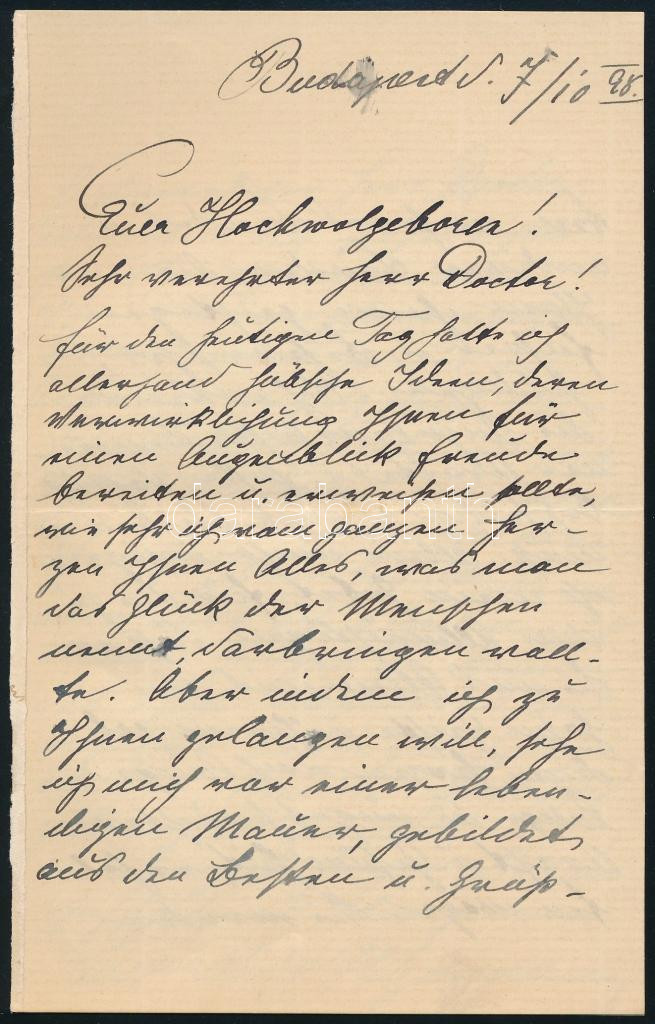 Budapest d. 7/10 98.
Euer Hochwolgeboren!
Sehr verehrter Herr Doctor!
Für den heutigen Tag hatte ich
allerhand hübsche Ideen, deren
Verwirklichung Ihnen für
einen Augenblick Freude
bereiten u. erweisen sollte,
wie sehr ich vom ganzen Her-
zen Ihnen Alles, was man
das Glück der Menschen
nennt, darbringen woll-
te. Aber indem ich zu
Ihnen gelangen will, sehe
ich mich vor einer leben-
digen Mauer, gebildet
aus den Besten u. Größ-
databanth